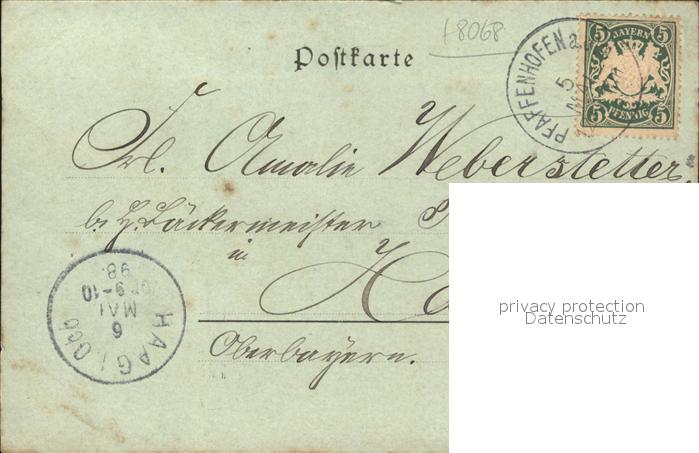 +8068
Postkarte
PFAFFENHOFEN a.
5
MAI
5 BAYERN 5
5 PFENNIG 5
Frl. Amalie Weberstetter,
b. H. Bäckermeister
in
Oberbayern.
HAAG i. Obb
6
MAI
Vor 9-10
98.
privacy protection
Datenschutz